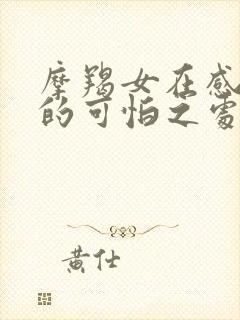 摩羯女在感
的可怕之處
黃仕